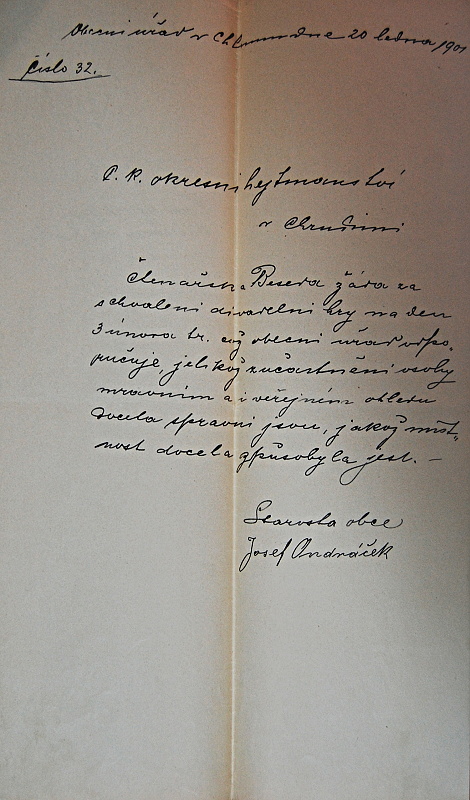 Obecní úřad v Chlumu dne 20 ledna 1901
Číslo 32.
C. k. okresní hejtmanství
v Chrudimi
Čtenářská Beseda žádá za
schválení divadelní hry na den
3 února tr. což obecní úřad odpo-
ručuje, jelikož zúčastnění osoby
mravním a i veřejným ohledu
docela spravní jsou, jakož míst-
nost docela způsobyla jest. —
Starosta obce
Josef Ondráček